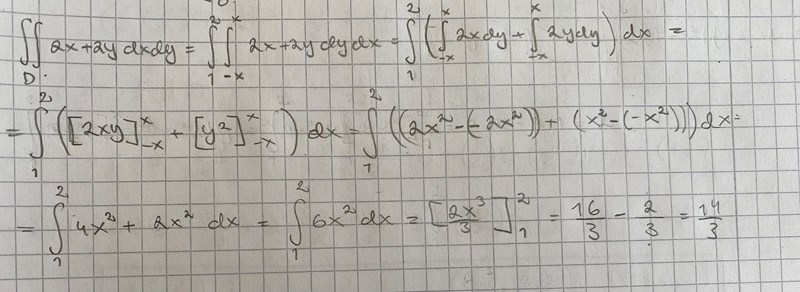 ∬_D 2x+2y dxdy = ∫_1^2 ∫_{-x}^x 2x+2y dydx = ∫_1^2 (∫_{-x}^x 2xdy + ∫_{-x}^x 2ydy) dx =
= ∫_1^2 ([2xy]_{-x}^x + [y²]_{-x}^x) dx = ∫_1^2 ((2x²-(-2x²)) + (x²-(-x²))) dx =
= ∫_1^2 4x² + 2x² dx = ∫_1^2 6x² dx = [2x³/3]_1^2 = 16/3 - 2/3 = 14/3